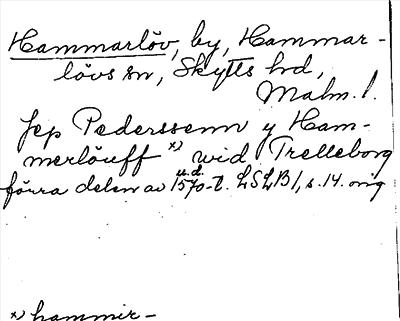 Hammarlöv, by, Hammar-
lövs sn, Skytts hd,
Malm. l.
Jep Pederssenn y Ham-
merlöuff x) wid Trelleborg
u.d.
förra delen av 1570-t. LSLB 1, s. 14. orig
x) hammir-